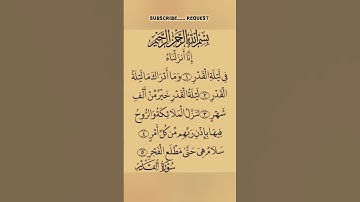 SUBSCRIBE.... REQUEST
بِسْمِ اللهِ الرَّحْمٰنِ الرَّحِيْمِ
إِنَّا أَنْزَلْنَاهُ
فِي لَيْلَةِ الْقَدْرِ ١ وَمَا أَدْرَاكَ مَا لَيْلَةُ
الْقَدْرِ ٢ لَيْلَةُ الْقَدْرِ خَيْرٌ مِنْ أَلْفِ
شَهْرٍ ٣ تَنَزَّلُ الْمَلَائِكَةُ وَالرُّوحُ
فِيهَا بِإِذْنِ رَبِّهِمْ مِنْ كُلِّ أَمْرٍ ٤
سَلَامٌ هِيَ حَتَّى مَطْلَعِ الْفَجْرِ ٥
سُوْرَةُ الْقَدْرِ